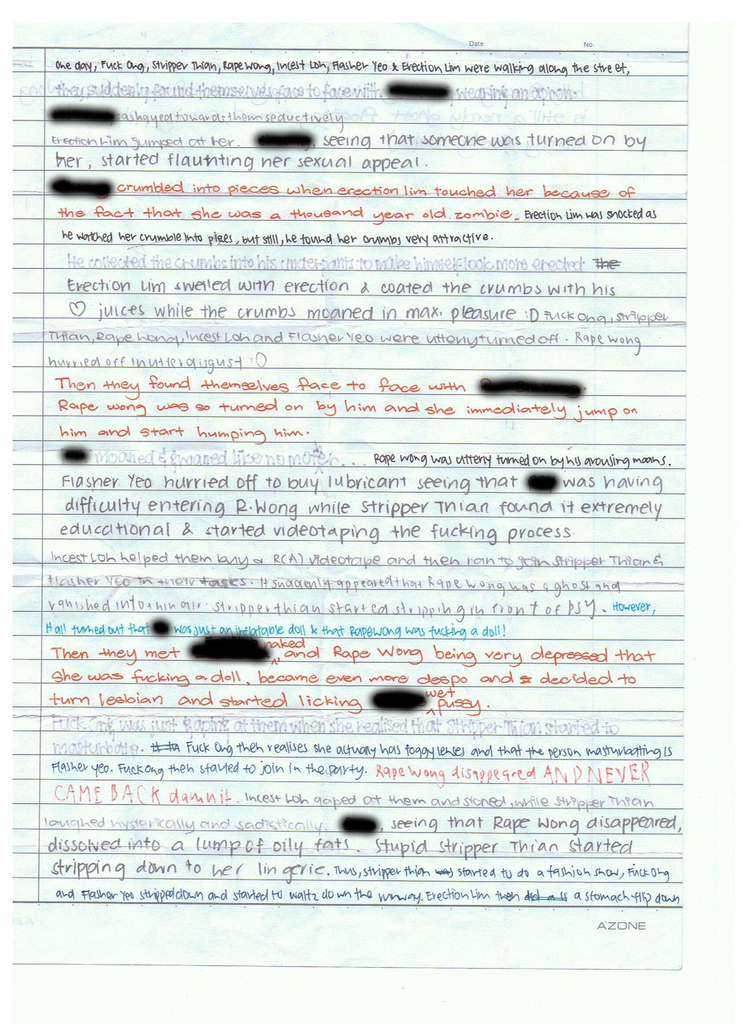 Date No.
One day, Fuck Ong, Stripper Thian, Rape Wong, Incest Loh, Flasher Yeo & Erection Lim were walking along the street,
they suddenly found themselves face to face with wearing an apron.
towards them seductively
Erection Lim jumped at her. , seeing that someone was turned on by
her, started flaunting her sexual appeal.
crumbled into pieces when erection lim touched her because of
the fact that she was a thousand year old zombie. Erection Lim was shocked as
he watched her crumble into pieces, but still, he found her crumbs very attractive.
He collected the crumbs into his underpants to make himself look more erected. The
Erection Lim swelled with erection & coated the crumbs with his
♡ juices while the crumbs moaned in max. pleasure :D Fuck Ong, stripper
Thian, Rape Wong, Incest Loh and Flasher Yeo were utterly turned off. Rape Wong
hurried off in utter disgust :O
Then they found themselves face to face with
Rape wong was so turned on by him and she immediately jump on
him and start humping him.
moaned & like no ... Rape wong was utterly turned on by his arousing moans.
Flasher Yeo hurried off to buy lubricant seeing that was having
difficulty entering R.Wong while stripper Thian found it extremely
educational & started videotaping the fucking process.
Incest Loh helped them buy a R(A) videotape and then ran to join Stripper Thian &
Flasher Yeo in their tasks. It suddenly appeared that Rape Wong was a ghost and
vanished into thin air. stripper thian started stripping in front of psy. However,
it all turned out that was just an inflatable doll & that Rape Wong was fucking a doll!
Then they met naked, and Rape Wong being very depressed that
she was fucking a doll, became even more despo and decided to
turn lesbian and started licking wet pussy.
Fuck Ong was just gaping at them when she realised that Stripper Thian started to
masturbate. Fuck Ong then realises she actually has foggy lenses and that the person masturbating is
Flasher Yeo. Fuck Ong then started to join in the party. Rape Wong disappeared AND NEVER
CAME BACK damnit. Incest Loh gaped at them and stoned, while Stripper Thian
laughed hysterically and sadistically. , seeing that Rape Wong disappeared,
dissolved into a lump of oily fats. Stupid stripper Thian started
stripping down to her lingerie. Thus, stripper thian started to do a fashion show, Fuck Ong
and Flasher Yeo stripped down and started to waltz down the runway. Erection Lim then a stomach flip down
A'ZONE